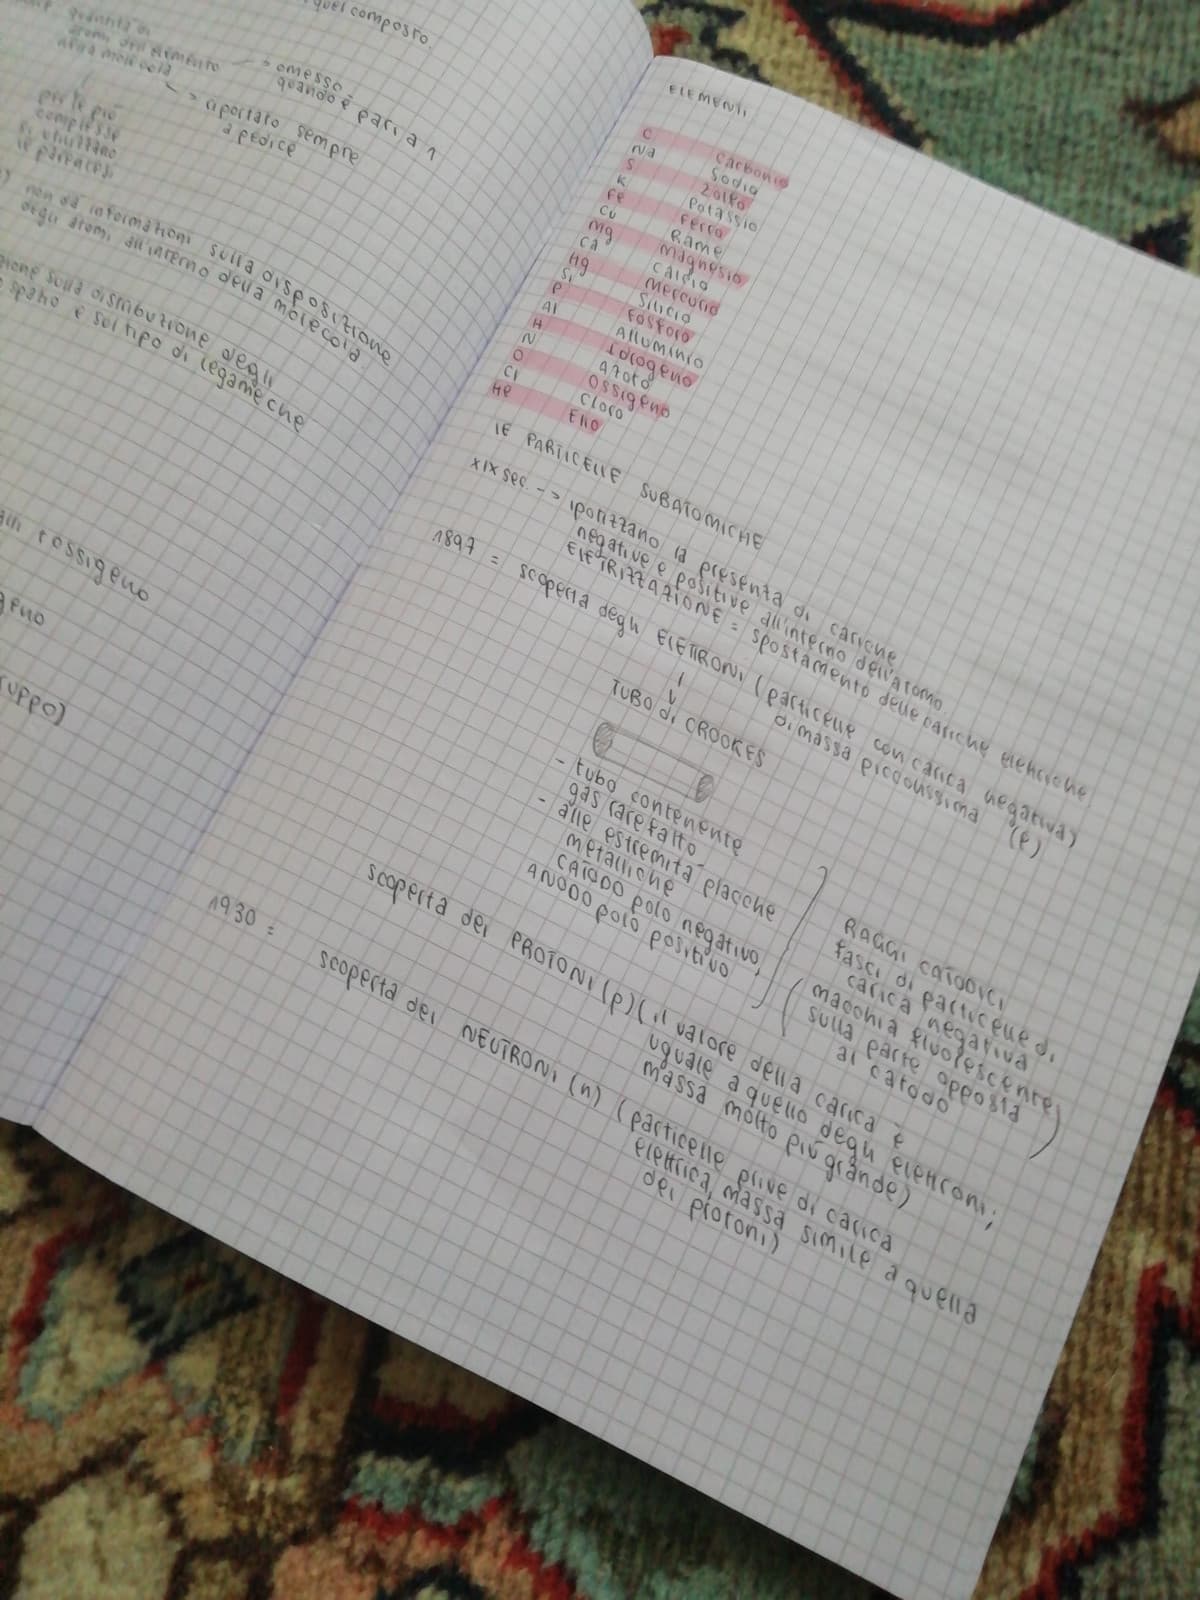 quel composto.
quantità di
atomi dell'elemento
nella molecola
-> omesso
quando è pari a 1
-> riportato sempre
a pedice
per le più
complesse
si utilizzano
le parentesi
non dà informazioni sulla disposizione
degli atomi all'interno della molecola
sulla distribuzione degli
spazio e sul tipo di legame che
l'ossigeno
ELEMENTI
C Carbonio
Na Sodio
S Zolfo
K Potassio
Fe Ferro
Cu Rame
Mg Magnesio
Ca Calcio
Hg Mercurio
Si Silicio
P Fosforo
Al Alluminio
H Idrogeno
N Azoto
O Ossigeno
Cl Cloro
He Elio
LE PARTICELLE SUBATOMICHE
XIX sec. --> ipotizzano la presenza di cariche
negative e positive all'interno dell'atomo
ELETRIZZAZIONE = spostamento delle cariche elettriche
1897 = scoperta degli ELETTRONI (particelle con carica negativa)
di massa piccolissima (e)
TUBO di CROOKES
- tubo contenente
gas rarefatto
- alle estremità placche
metalliche
CATODO polo negativo,
ANODO polo positivo
RAGGI CATODICI
fasci di particelle di
carica negativa
(macchia fluorescente
sulla parte opposta
al catodo)
scoperta dei PROTONI (p) (il valore della carica è
uguale a quello degli elettroni;
massa molto più grande)
1930 =
scoperta dei NEUTRONI (n) (particelle prive di carica
elettrica, massa simile a quella
dei protoni)